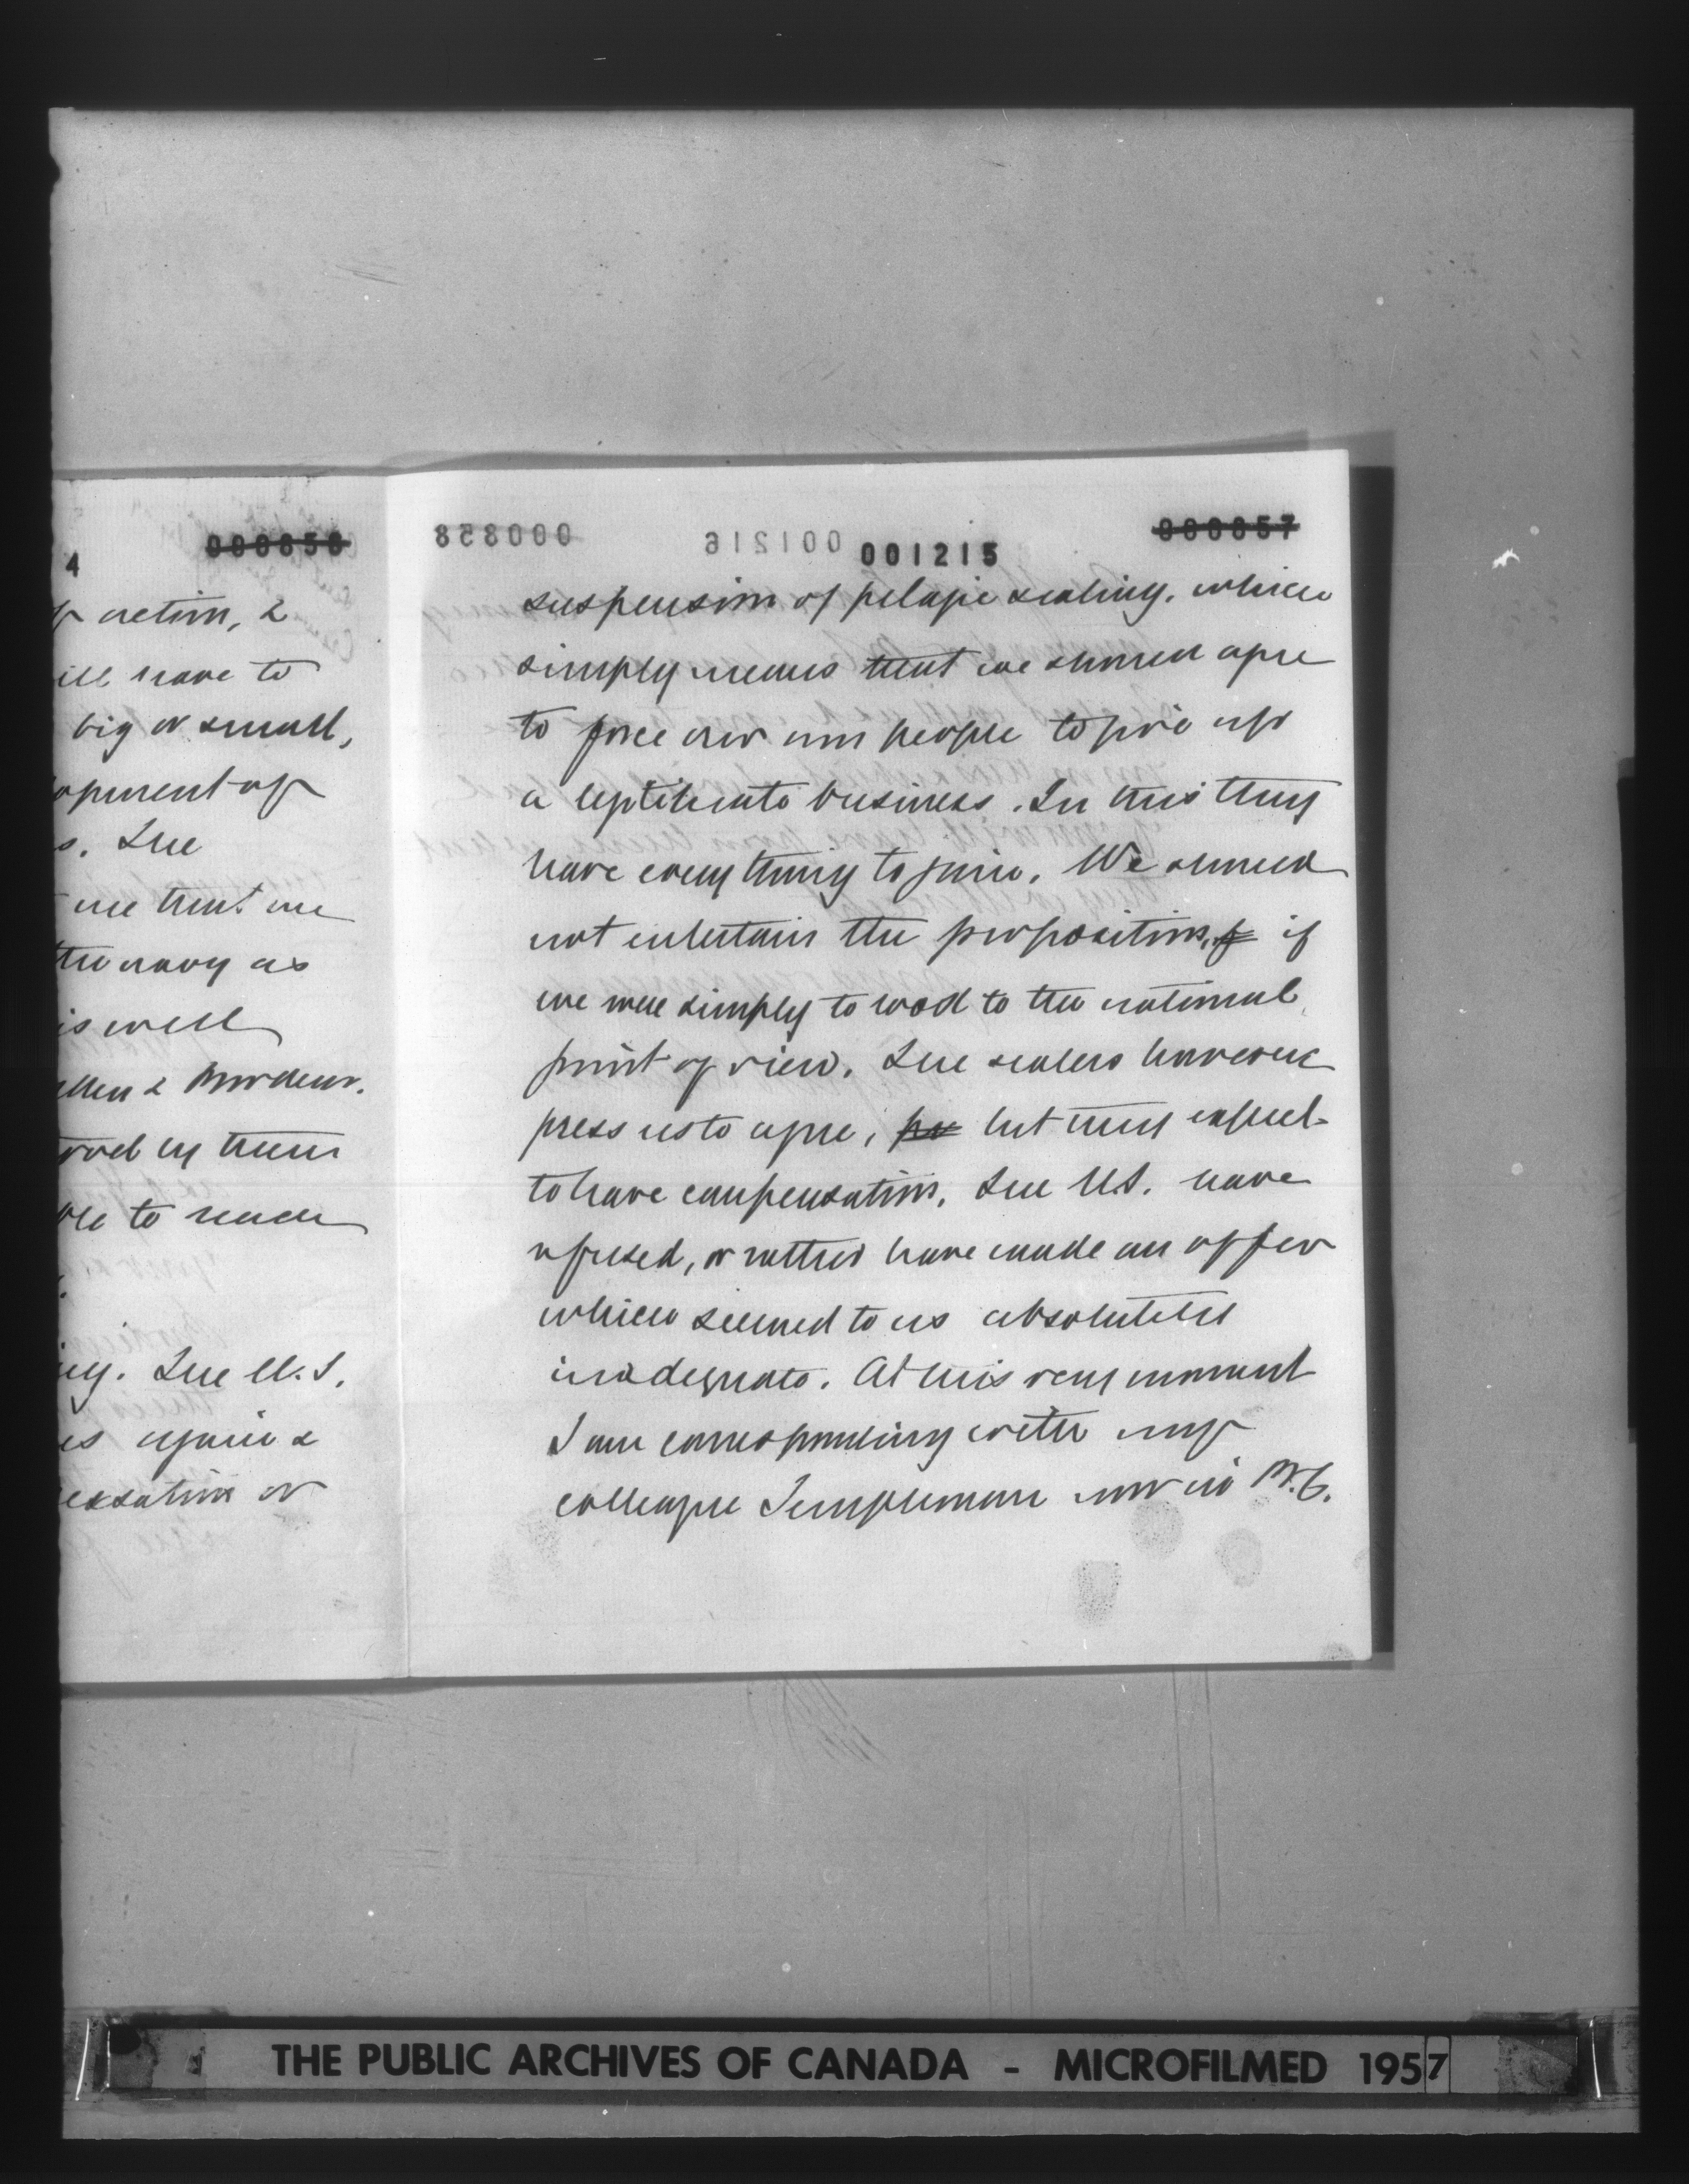 000856
4
action, &
ill have to
big or small,
opment of
s. The
me that we
the navy as
is well
& Borden.
by them
to reach
ing. The U.S.
is again &
ensation or
000858
001216
001215
000857
suspension of pelagic sealing, which
simply means that we should agree
to force our own people to give up
a legitimate business. In this they
have everything to gain. We should
not entertain the proposition, if if
we were simply to look to the national
point of view. The sealers however
press us to agree, but they expect
to have compensation. The U.S. have
refused, or rather have made an offer
which seemed to us absolutely
inadequate. At this very moment
I am corresponding with my
colleague Templeman now in B.C.
THE PUBLIC ARCHIVES OF CANADA - MICROFILMED 1957